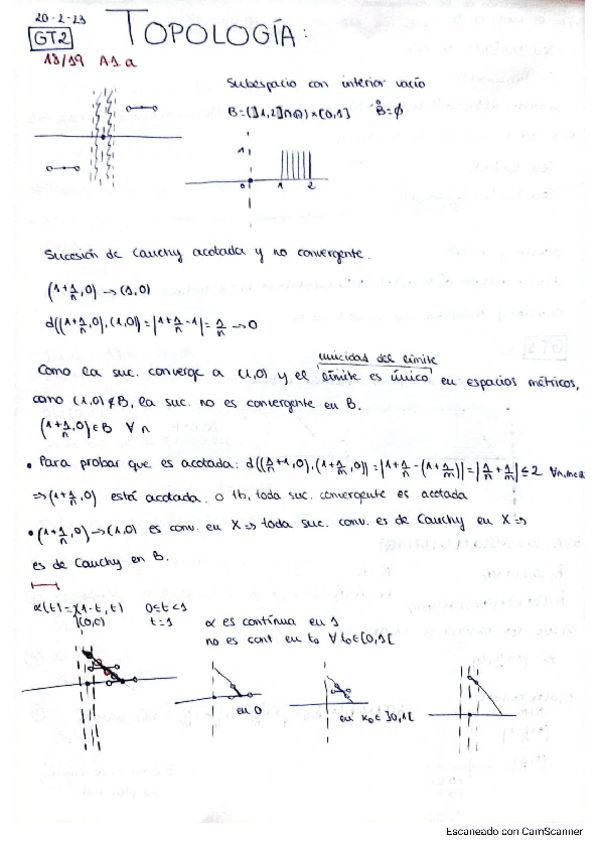 20-2-23
GT2
TOPOLOGÍA:
18/19 A1.a
Subespacio con interior vacío
B=(]1,2]∩Q)×[0,1] B̊=∅
1
0 1 2
Sucesión de Cauchy acotada y no convergente.
(1+1/n,0)→(1,0)
d((1+1/n,0),(1,0))=|1+1/n-1|=1/n→0
unicidad del límite
Como la suc. converge a (1,0) y el límite es único en espacios métricos,
como (1,0)∉B, la suc. no es convergente en B.
(1+1/n,0)∈B ∀n
• Para probar que es acotada: d((1/n+1,0),(1+1/m,0))=|1+1/n-(1+1/m)|=|1/n+1/m|≤2 ∀n,m∈
⇒(1+1/n,0) está acotada. o tb, toda suc. convergente es acotada
• (1+1/n,0)→(1,0) es conv. en X⇒toda suc. conv. es de Cauchy en X⇒
es de Cauchy en B.
α(t)={(1-t,t) 0≤t<1
(0,0) t=1
α es contínua en 1
no es cont en t₀ ∀t₀∈[0,1[
en 0
en x₀∈]0,1[
Escaneado con CamScanner